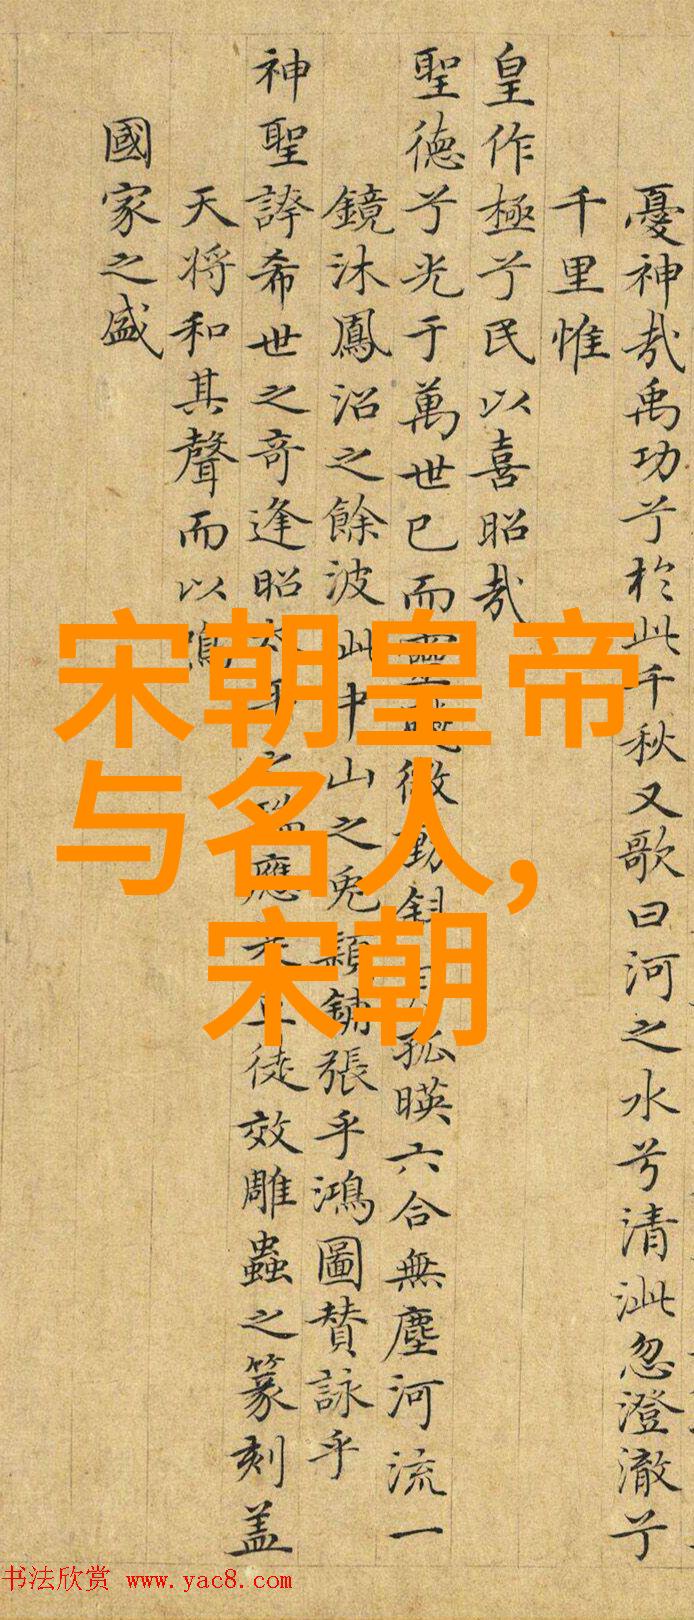 憂神哉禹功兮於此千秋又歌曰河之水兮清泚忽澄澈兮
千里惟
皇作極兮民以喜昭哉
聖德兮光于萬世已而靈飈微動釣月孤暎六合無塵河流一
鏡沐鳳沼之餘波此中山之兎穎鋪張乎鴻圖賛詠乎
神聖誇希世之奇逢昭太平之瑞應夫豈徒效雕蟲之篆刻盖
天將和其聲而以鳴
國家之盛
宋朝皇帝
与名人,
宋朝
书法欣赏 www.yac8.com